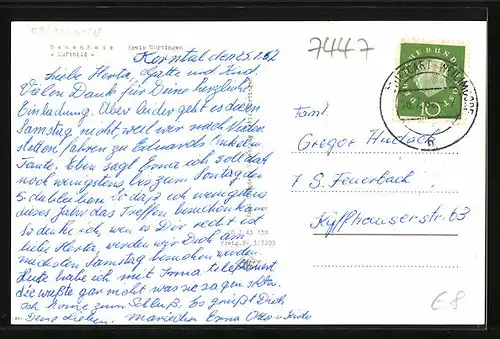 Neuenhaus Kreis Nürtingen
- Luftbild -
Korntal den 25.1.62
Liebe Herta, Gatte und Kind.
Vielen Dank für Deine herzliche
Einladung. Aber leider geht es diesen
Samstag nicht, weil wir nach
stetten fahren zu Eduards Onkel
Tante. Eben sagt Erna ich soll dat
noch wenigstens bis zum Sonntag den
da bleiben so daß ich wenigstens
dieses Jahr das Treffen besuchen kann
So denke ich, wen es Dir recht ist
liebe Herta, werden wir Dich am
nächsten Samstag besuchen werden
Heute habe ich mit Irma telefoniert
die wußte gar nicht was sie sagen
Ich komme zum Schluß. Es grüßt Dich
u. Deine Lieben. Mariechen Erna Otto u.
7447
DEUTSCHE BUNDESPOST
10
Fam.
Gregor
7 S. Feuerbach
Kyffhäuserstr. 63
€8